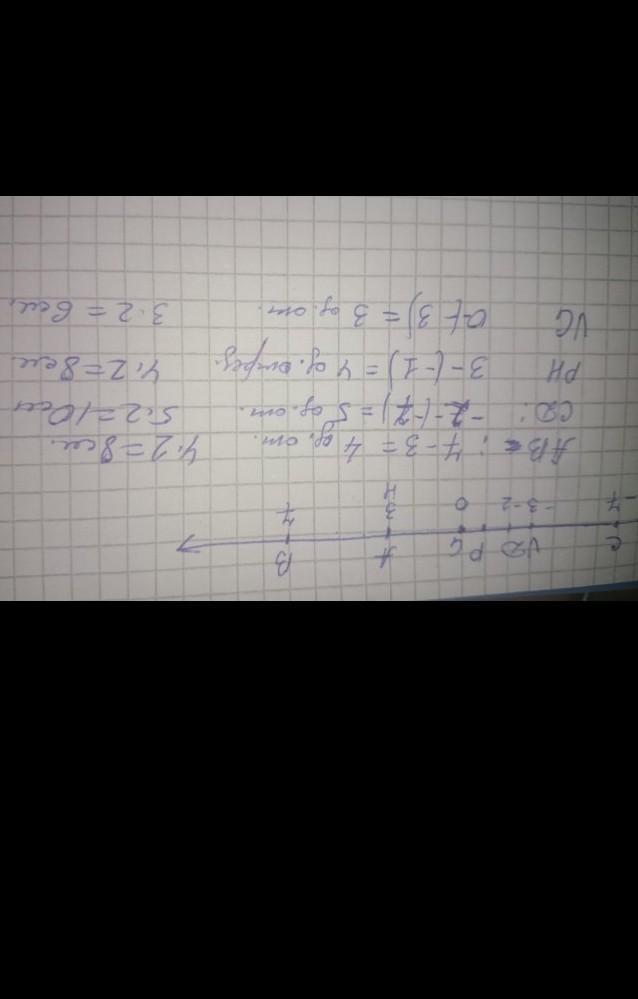 C V D P G A B
-7 -3 -2 0 3 7
H
AB : 7-3 = 4 ед. от. 4·2=8см.
CD: -2-(-7) = 5 ед. от. 5·2=10см
PH 3-(-1) = 4 ед. отрез. 4·2=8см.
VG 0-(-3) = 3 ед. от. 3·2=6см.